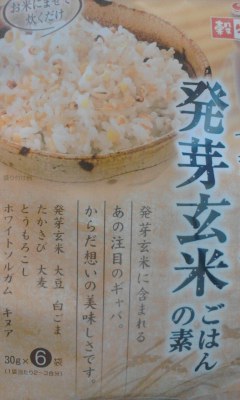 お米にまぜて
炊くだけ
穀
発芽玄米
ごはん
の素
発芽玄米に含まれる
あの注目のギャバ。
からだ想いの美味しさです。
発芽玄米 大豆 白ごま
たかきび 大麦
とうもろこし
ホワイトソルガム キヌア
30g×6袋